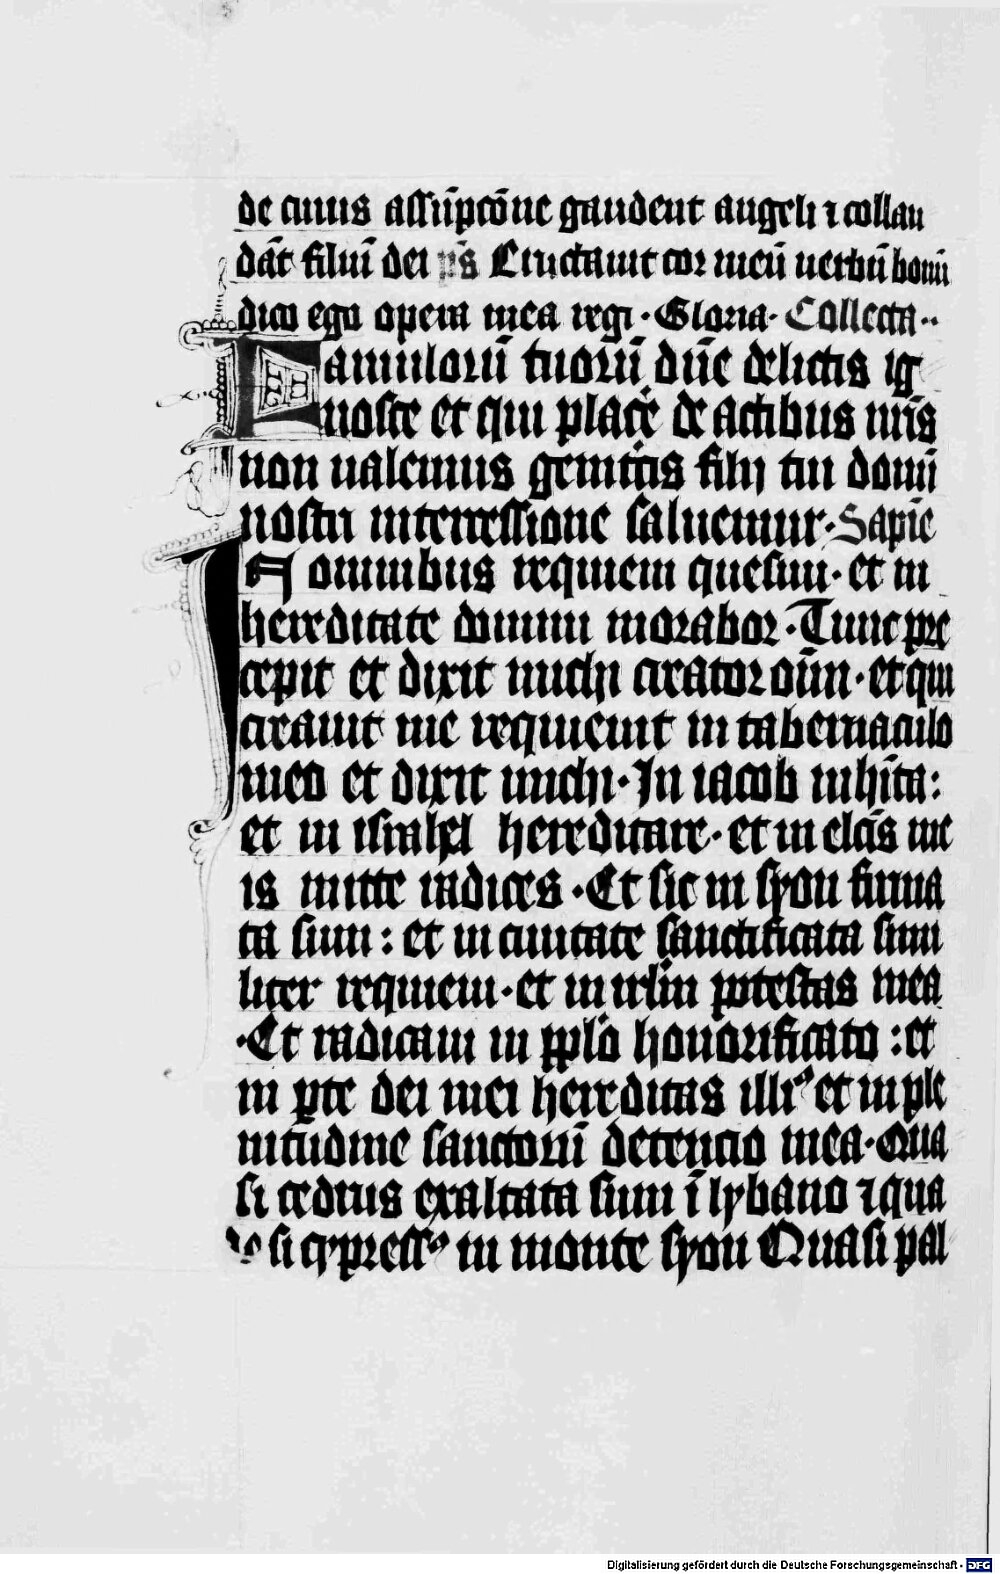 de cuius assūpcōne gaudent angeli ⁊ collau
dāt filiū dei p̄s Eructauit cor meū uerbū bonū
dico ego opera mea regi · Gloria · Collecta ··
Famulorū tuorū dn̄e delictis ig
nosce et qui placē de actibus nr̄is
non ualemus genit̄cis filij tui domī
nostri intercessione saluemur · Sapīe
In omnibus requiem quesiui · et in
hereditate domini morabor · Tunc pre
cepit et dixit michi creator oīm · et qui
creauit me requieuit in tabernaculo
meo et dixit michi · In iacob inhīta :
et in israhel hereditare · et in elc̄is me
is mitte radices · Et sic in syon firma
ta sum : et in ciuitate sanctificata simi
liter requieui · et in irlm̄ potestas mea
· Et radicaui in pplo̅ honorificato : et
in ꝑte dei mei hereditas illiꝰ et in ple
nitudine sanctorū detencio mea · Qua
si cedrus exaltata sum ī lybano ⁊ qua
si cypressꝰ in monte syon Quasi pal
Digitalisierung gefördert durch die Deutsche Forschungsgemeinschaft - DFG